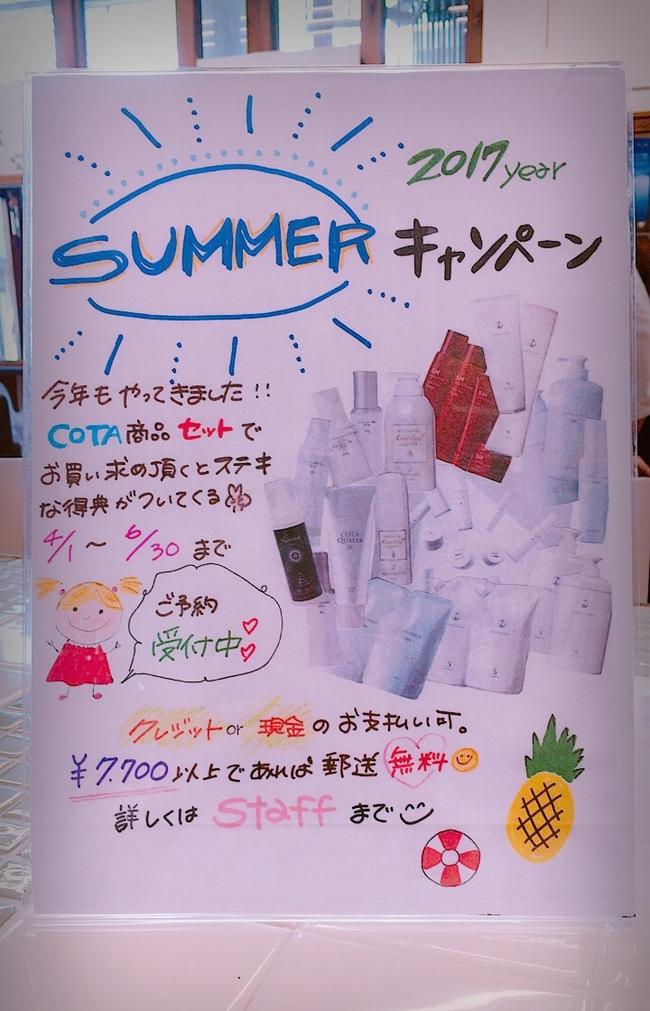 2017 year
SUMMER キャンペーン
今年もやってきました!!
COTA商品セットで
お買い求め頂くとステキ
な得典がついてくる
4/1〜6/30まで
ご予約
受付中
クレジット or 現金のお支払い可。
¥7.700以上であれば郵送無料
詳しくはstaffまで
COTA
QUALIA